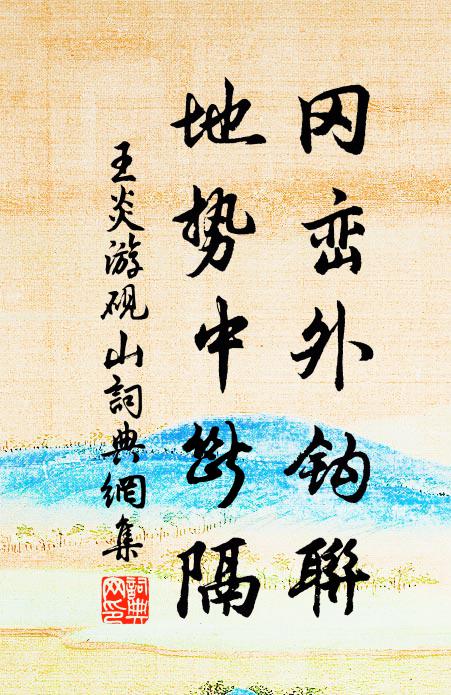 冈峦外钩聯
地势中断隔
王炎游砚山詞典網集
詞典网印